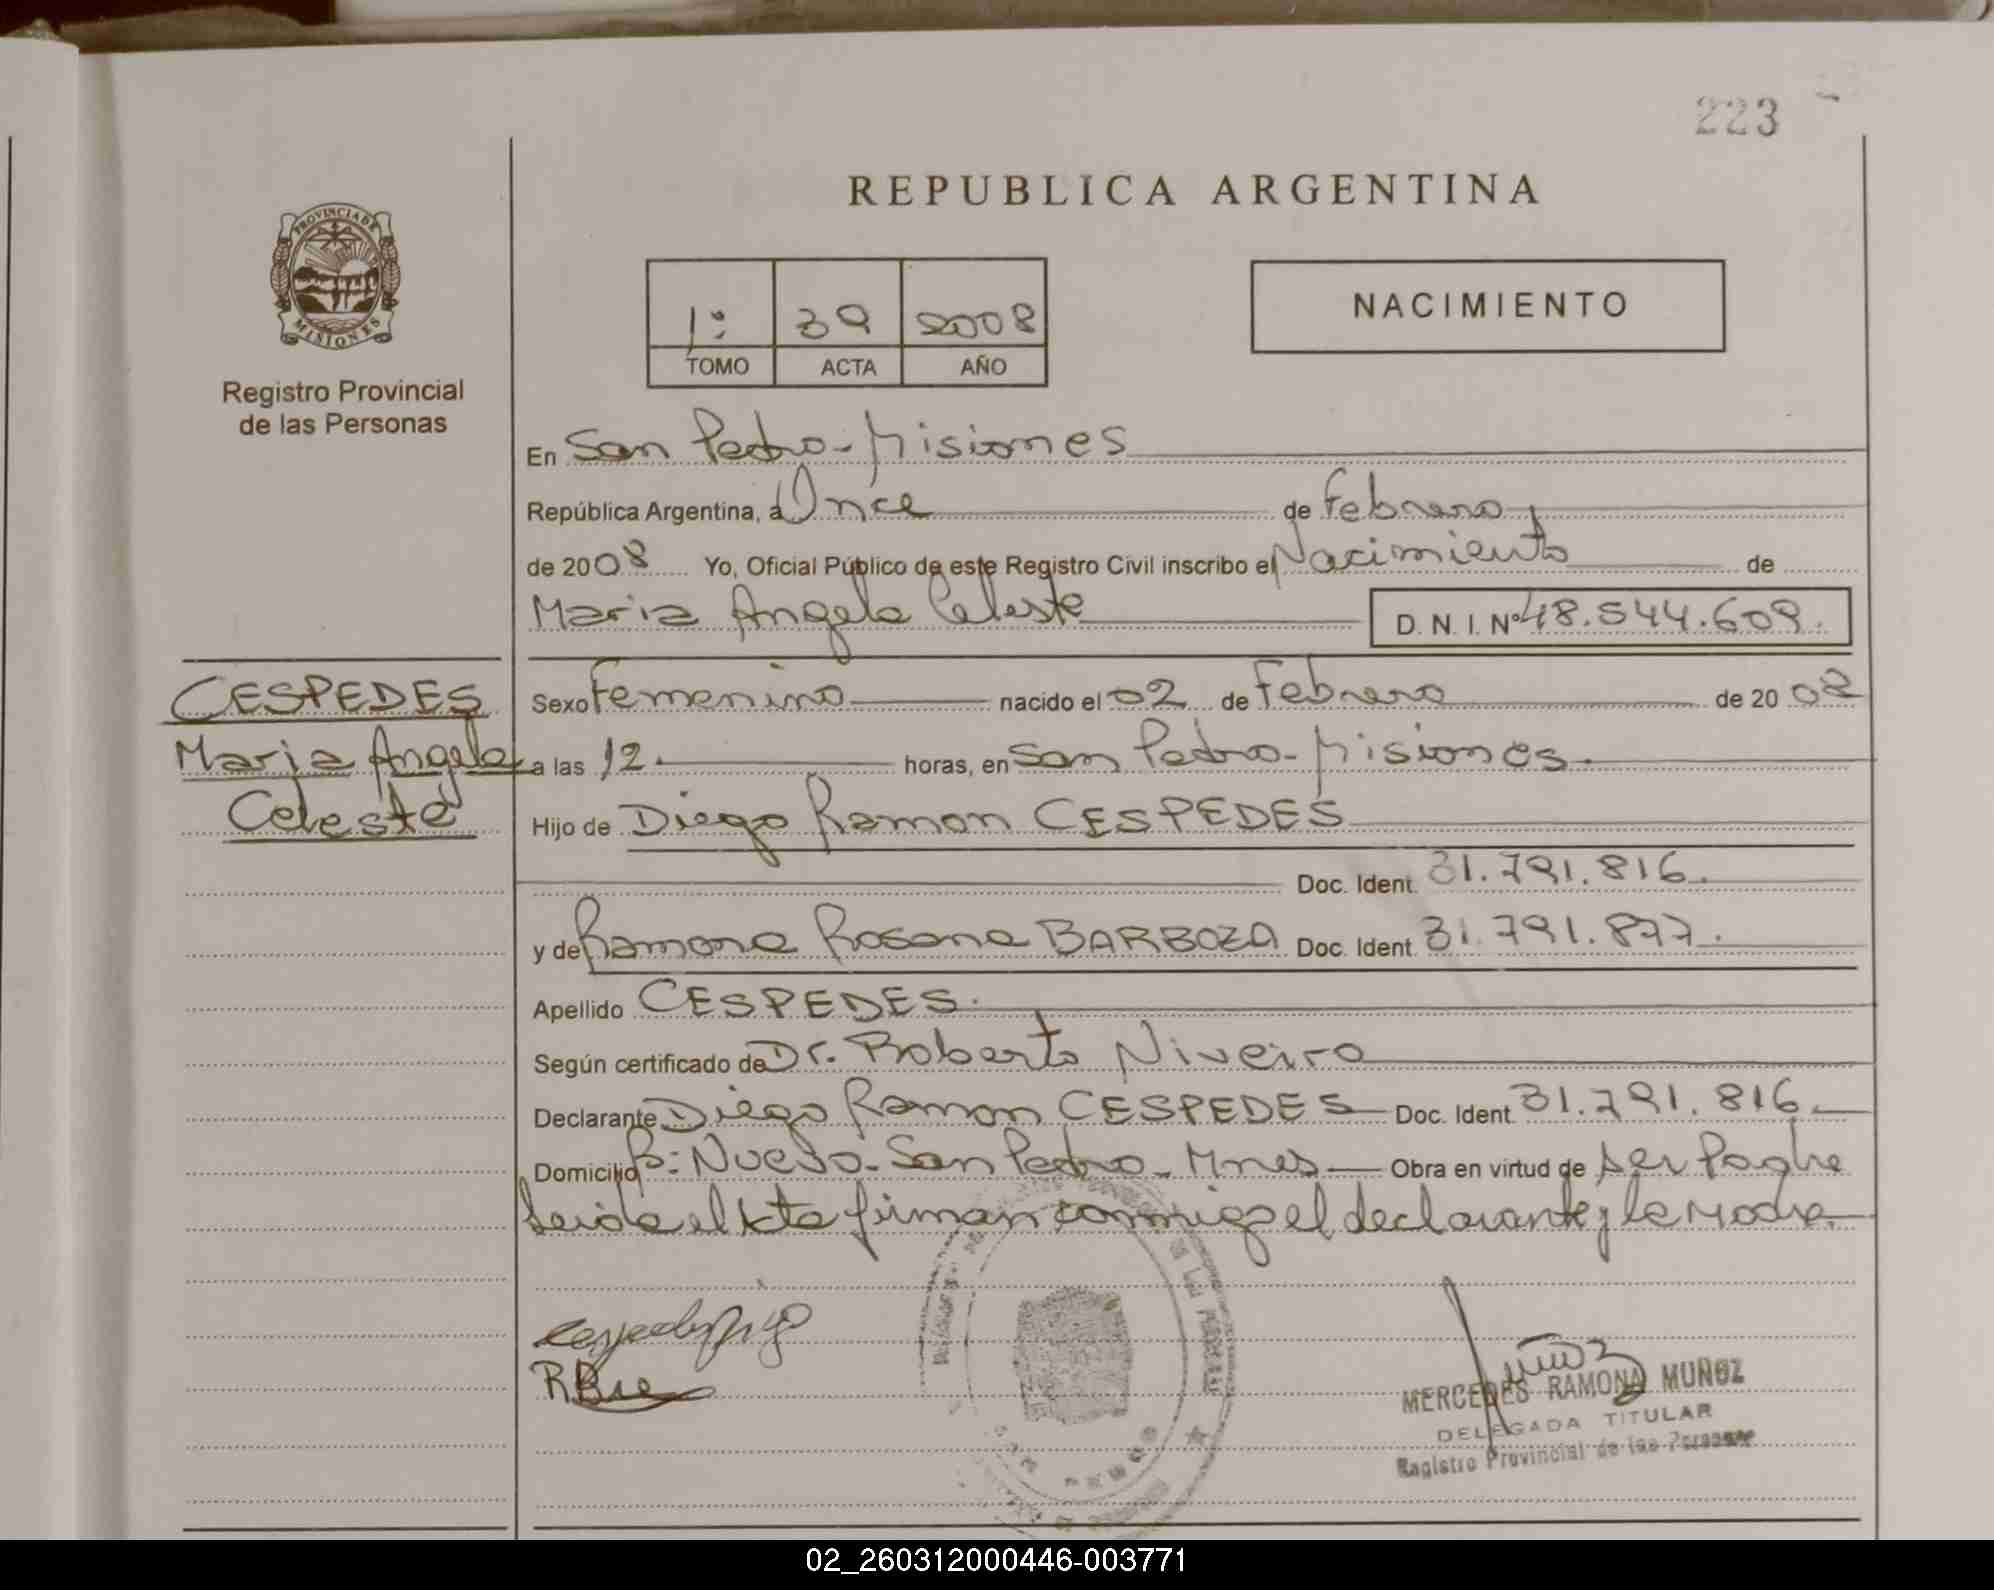 223
REPUBLICA ARGENTINA
PROVINCIA DE
MISIONES
Registro Provincial
de las Personas
1º 39 2008
TOMO ACTA AÑO
NACIMIENTO
En San Pedro - Misiones
República Argentina, a Once de Febrero
de 2008 Yo, Oficial Público de este Registro Civil inscribo el Nacimiento de
Maria Angela Celeste D.N.I. Nº 48.544.609.
CESPEDES
Maria Angela
Celeste
Sexo Femenino nacido el 02 de Febrero de 20 08
a las 12. horas, en San Pedro - Misiones.
Hijo de Diego Ramon CESPEDES
Doc. Ident. 31.791.816.
y de Ramona Rosana BARBOZA Doc. Ident. 31.791.877.
Apellido CESPEDES.
Según certificado de Dr. Roberto Niveiro
Declarante Diego Ramon CESPEDES Doc. Ident. 31.791.816.
Domicilio Bº: Nuevo - San Pedro - Mnes Obra en virtud de ser Padre
Leida el Acta firman conmigo el declarante y la Madre.
MERCEDES RAMONA MUÑOZ
DELEGADA TITULAR
Registro Provincial de las Personas
02_260312000446-003771